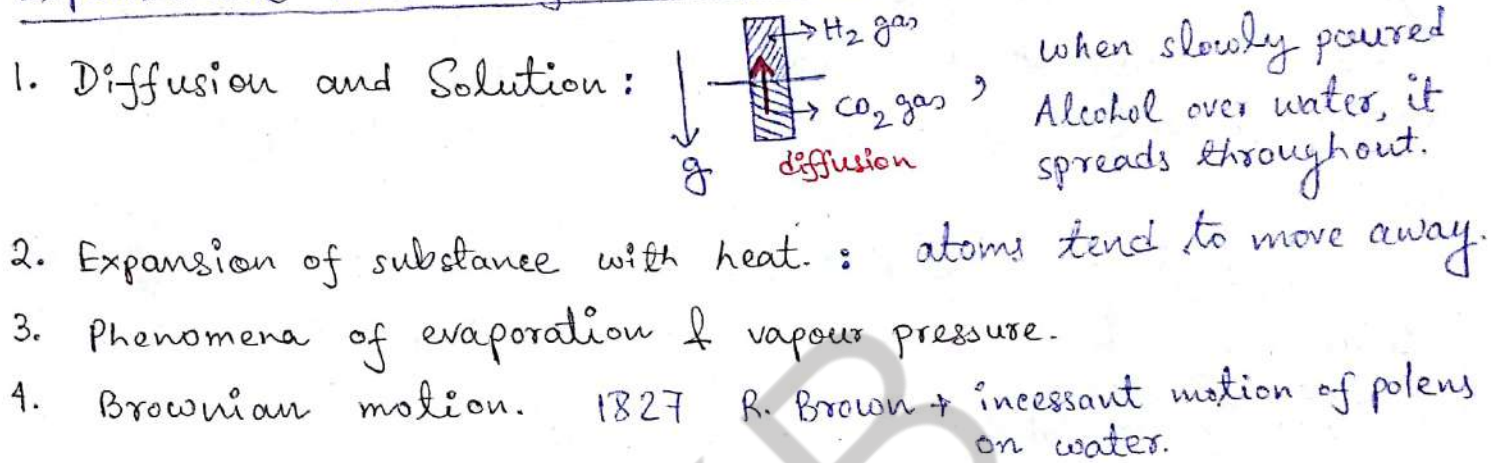 1. Diffusion and Solution :
g
→ H₂ gas
→ CO₂ gas ,
diffusion
when slowly poured
Alcohol over water, it
spreads throughout.
2. Expansion of substance with heat. : atoms tend to move away.
3. Phenomena of evaporation & vapour pressure.
4. Brownian motion. 1827 R. Brown → incessant motion of polens
on water.